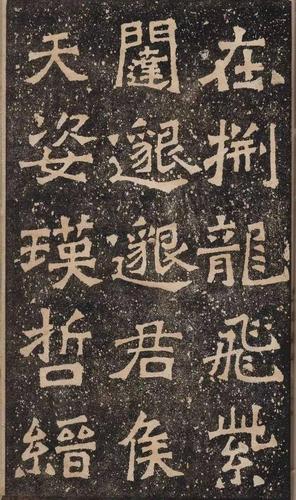 在淵龍飛紫
闥邈邈君侯
天姿瑛哲縉